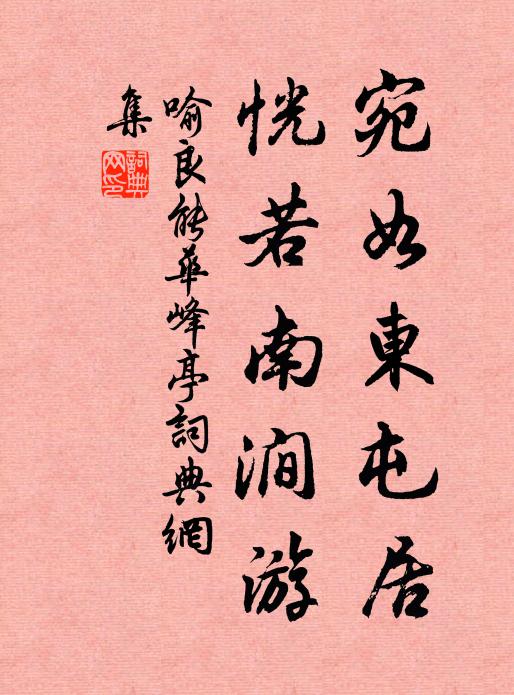 宛如東屯居
恍若南澗游
喻良能華峰亭詞典網
集
詞典
网印